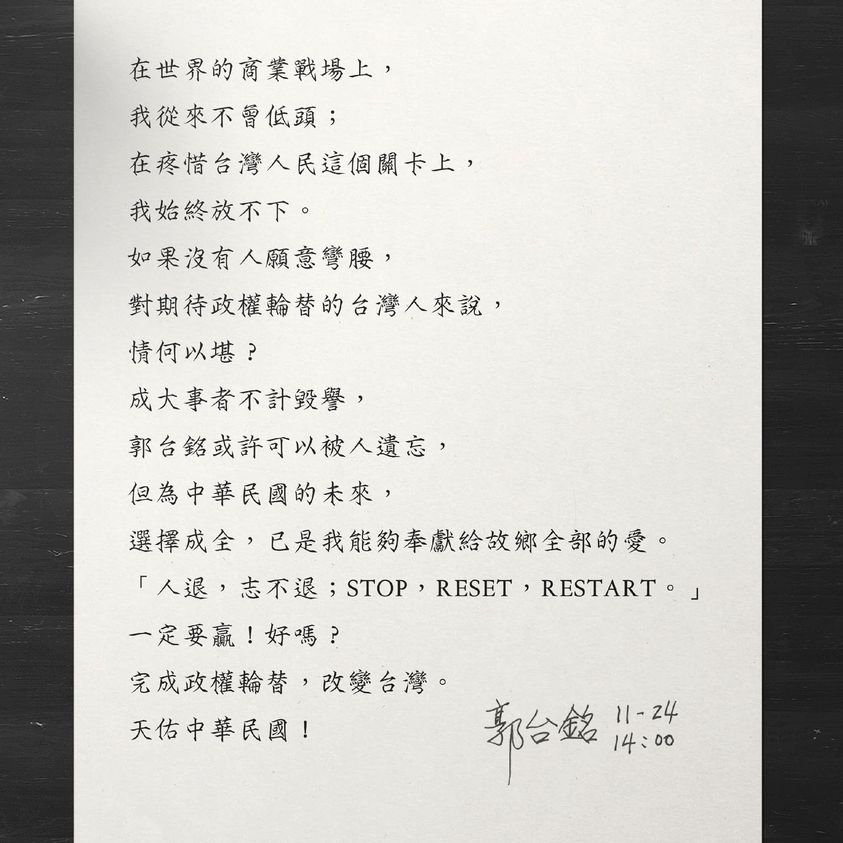 在世界的商業戰場上，
我從來不曾低頭；
在疼惜台灣人民這個關卡上，
我始終放不下。
如果沒有人願意彎腰，
對期待政權輪替的台灣人來說，
情何以堪？
成大事者不計毀譽，
郭台銘或許可以被人遺忘，
但為中華民國的未來，
選擇成全，已是我能夠奉獻給故鄉全部的愛。
「人退，志不退；STOP，RESET，RESTART。」
一定要贏！好嗎？
完成政權輪替，改變台灣。
天佑中華民國！
郭台銘 11-24
14:00